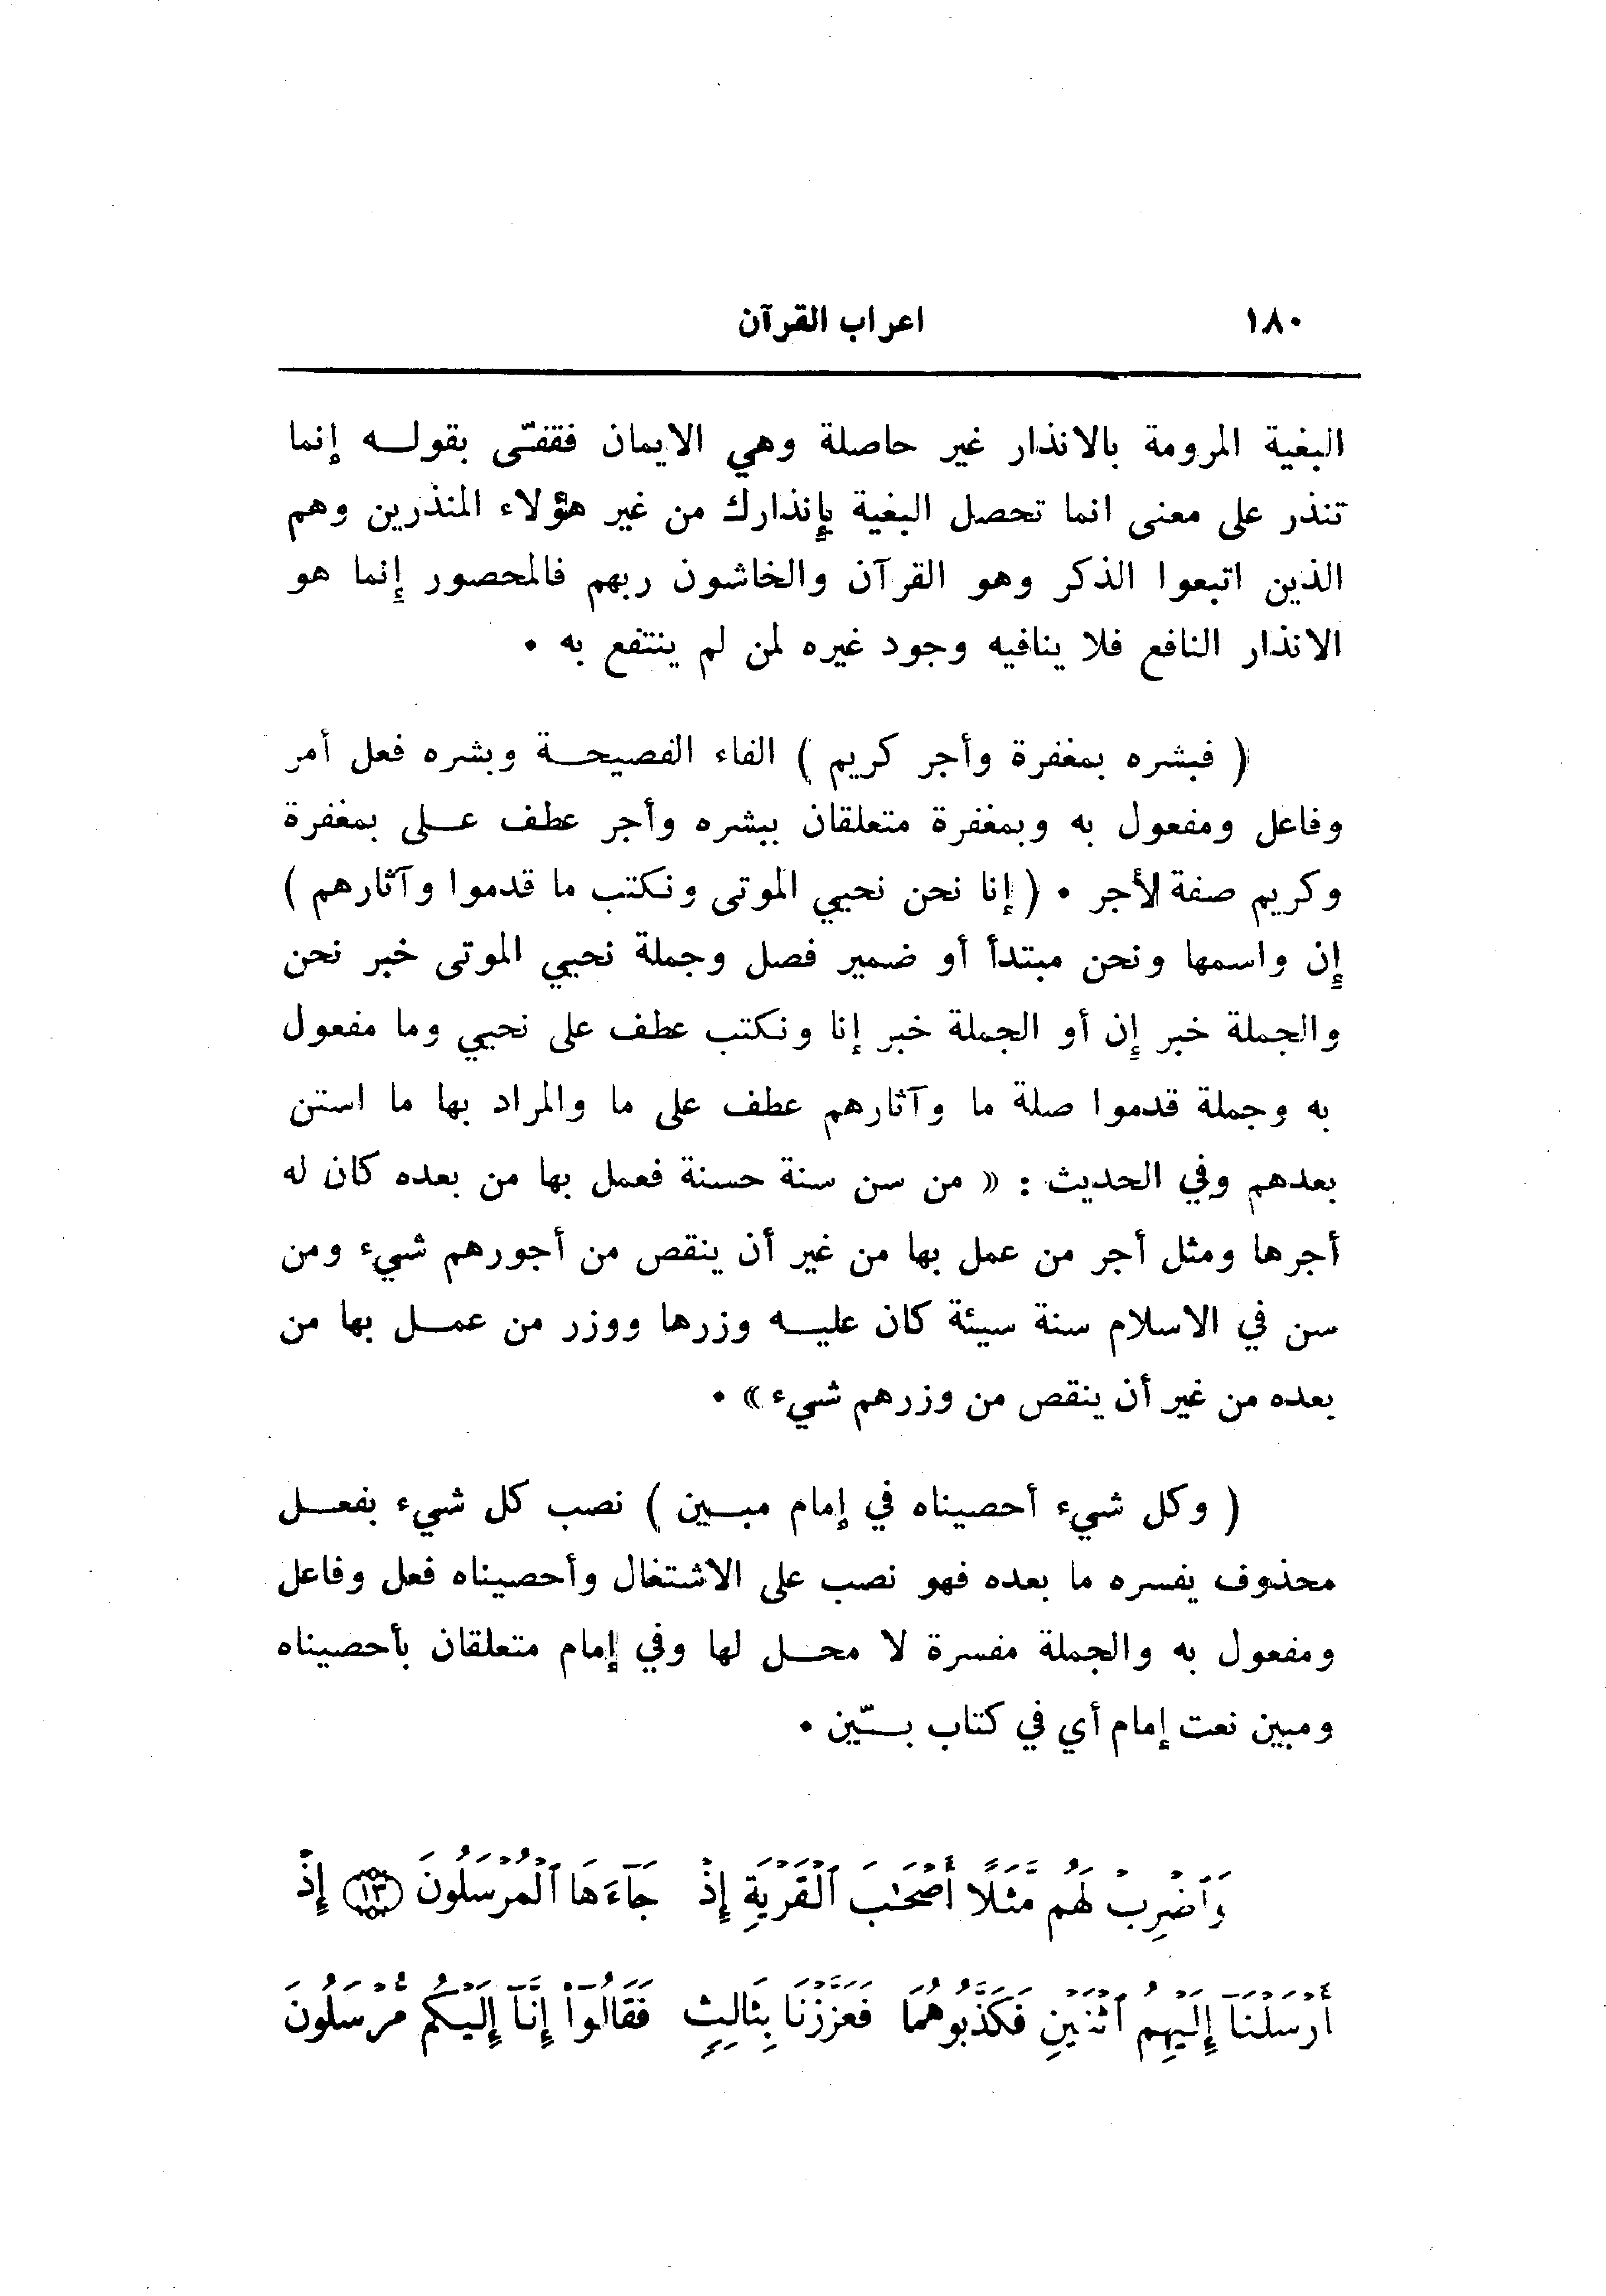 ١٨٠ اعراب القرآن
البغية المرومة بالانذار غير حاصلة وهي الايمان فقفتّى بقولـه إنما
تنذر على معنى انما تحصل البغية بإنذارك من غير هؤلاء المنذرين وهم
الذين اتبعوا الذكر وهو القرآن والخاشون ربهم فالمحصور إنما هو
الانذار النافع فلا ينافيه وجود غيره لمن لم ينتفع به .
( فبشره بمغفرة وأجر كريم ) الفاء الفصيحـة وبشره فعل أمر
وفاعل ومفعول به وبمغفرة متعلقان ببشره وأجر عطف عـلى بمغفرة
وكريم صفة لأجر . ( إنا نحن نحيي الموتى ونكتب ما قدموا وآثارهم )
إن واسمها ونحن مبتدأ أو ضمير فصل وجملة نحيي الموتى خبر نحن
والجملة خبر إن أو الجملة خبر إنا ونكتب عطف على نحيي وما مفعول
به وجملة قدموا صلة ما وآثارهم عطف على ما والمراد بها ما استن
بعدهم وفي الحديث : « من سن سنة حسنة فعمل بها من بعده كان له
أجرها ومثل أجر من عمل بها من غير أن ينقص من أجورهم شيء ومن
سن في الاسلام سنة سيئة كان عليـه وزرها ووزر من عمـل بها من
بعده من غير أن ينقص من وزرهم شيء » .
( وكل شيء أحصيناه في إمام مبـين ) نصب كل شيء بفعـل
محذوف يفسره ما بعده فهو نصب على الاشتغال وأحصيناه فعل وفاعل
ومفعول به والجملة مفسرة لا محـل لها وفي إمام متعلقان بأحصيناه
ومبين نعت إمام أي في كتاب بـيّن .
وَٱضْرِبْ لَهُم مَّثَلًا أَصْحَٰبَ ٱلْقَرْيَةِ إِذْ جَآءَهَا ٱلْمُرْسَلُونَ ١٣ إِذْ
أَرْسَلْنَآ إِلَيْهِمُ ٱثْنَيْنِ فَكَذَّبُوهُمَا فَعَزَّزْنَا بِثَالِثٍ فَقَالُوٓا۟ إِنَّآ إِلَيْكُم مُّرْسَلُونَ